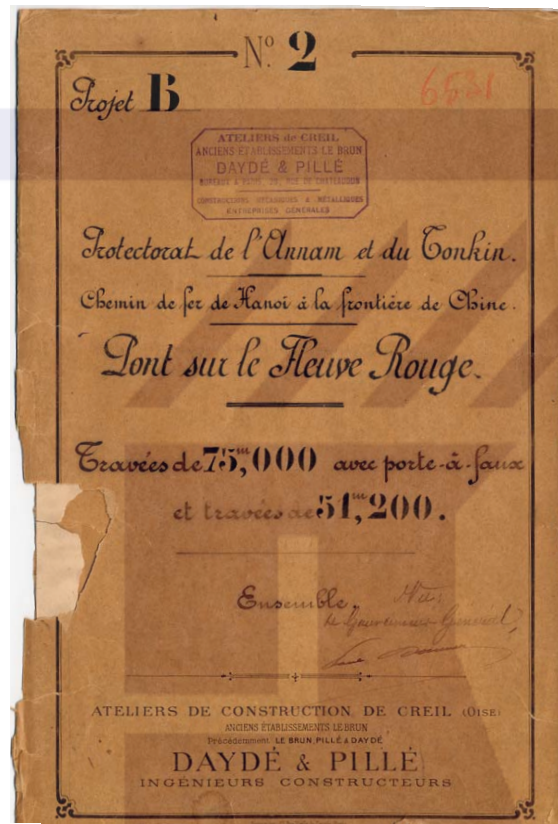 Nº 2
Projet B
6531
ATELIERS de CREIL
ANCIENS ÉTABLISSEMENTS LE BRUN
DAYDÉ & PILLÉ
CONSTRUCTIONS MÉCANIQUES & MÉTALLIQUES
ENTREPRISES GÉNÉRALES
Protectorat de l'Annam et du Tonkin.
Chemin de fer de Hanoï à la frontière de Chine.
Pont sur le Fleuve Rouge.
Travées de 75,m000 avec porte-à-faux
et travées de 51,m200.
Ensemble.
Vu:
le Gouverneur Général,
ATELIERS DE CONSTRUCTION DE CREIL (OISE)
ANCIENS ÉTABLISSEMENTS LEBRUN
Précédemment LE BRUN, PILLÉ & DAYDÉ
DAYDÉ & PILLÉ
INGÉNIEURS CONSTRUCTEURS